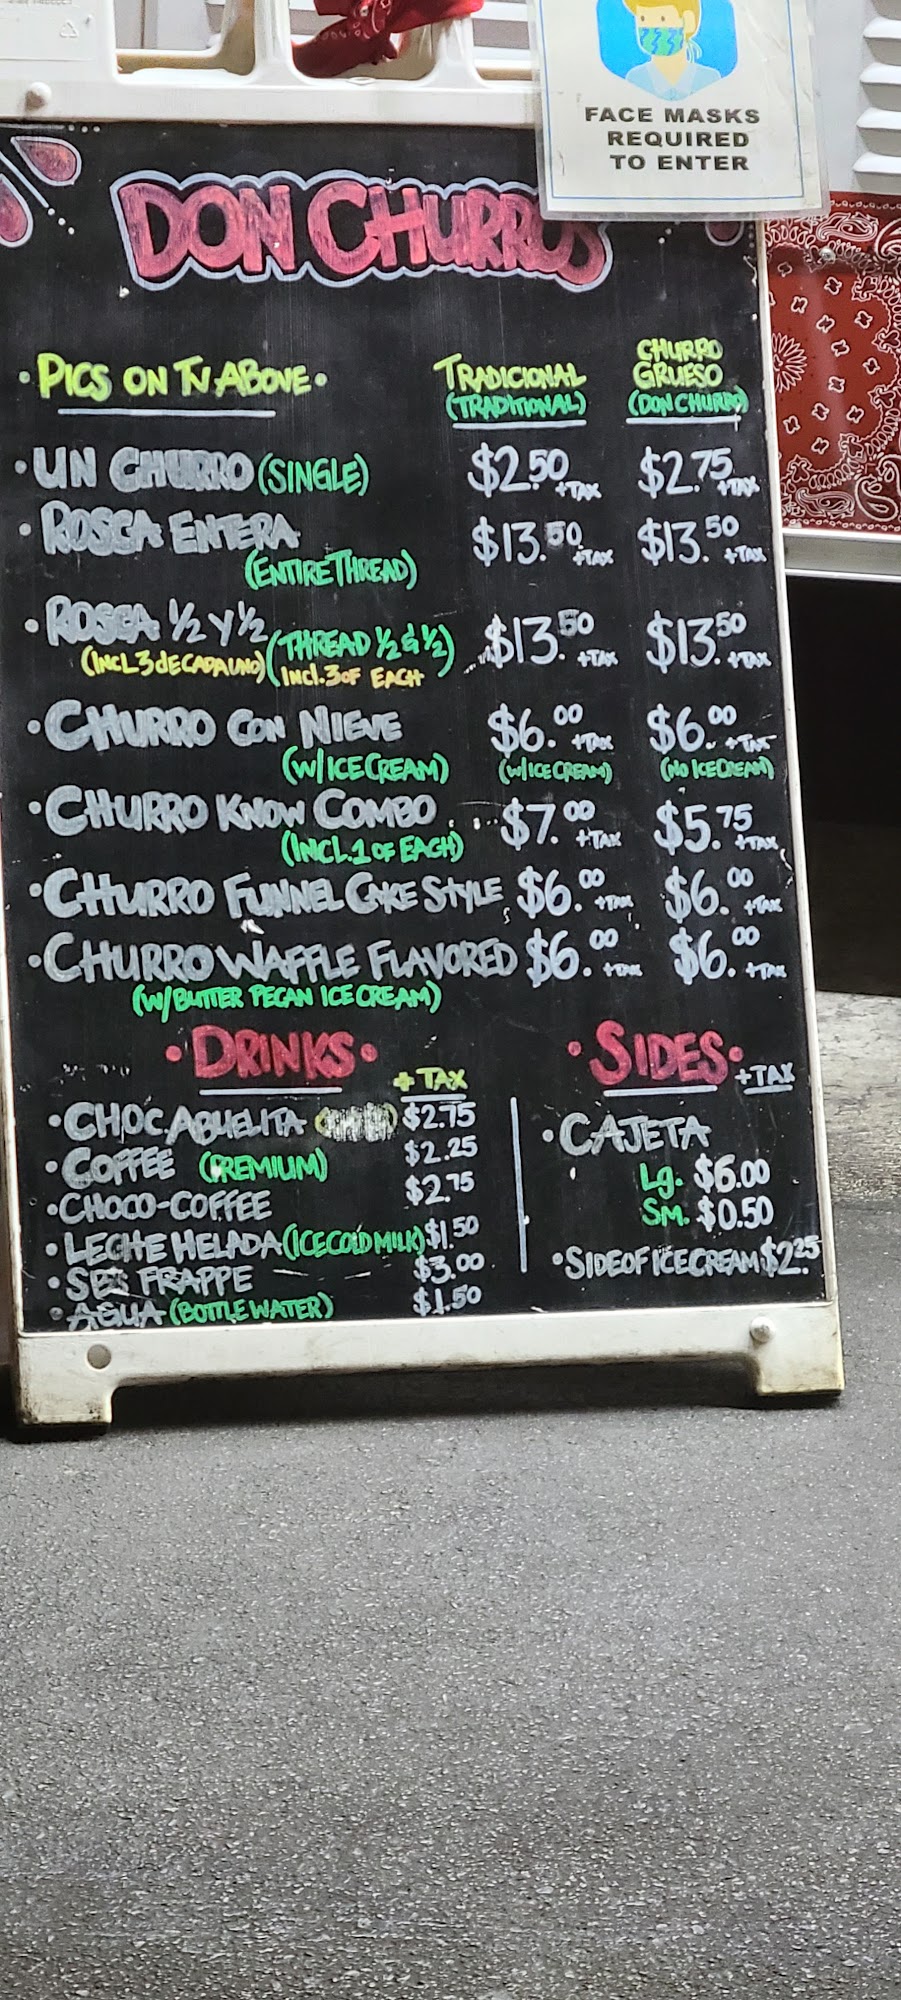 FACE MASKS
REQUIRED
TO ENTER
DON CHURROS
• PICS ON TV ABOVE • TRADICIONAL (TRADITIONAL) CHURRO GRUESO (DON CHURRO)
• UN CHURRO (SINGLE) $2.50 +TAX $2.75 +TAX
• ROSCA ENTERA $13.50 +TAX $13.50 +TAX
(ENTIRE THREAD)
• ROSCA 1/2 Y 1/2 (THREAD 1/2 & 1/2) $13.50 +TAX $13.50 +TAX
(INCL 3 de CADA UNO) INCL. 3 OF EACH
• CHURRO CON NIEVE $6.00 +TAX $6.00 +TAX
(W/ICE CREAM) (W/ICE CREAM) (NO ICE CREAM)
• CHURRO KNOW COMBO $7.00 +TAX $5.75 +TAX
(INCL. 1 OF EACH)
• CHURRO FUNNEL CAKE STYLE $6.00 +TAX $6.00 +TAX
• CHURRO WAFFLE FLAVORED $6.00 +TAX $6.00 +TAX
(W/BUTTER PECAN ICE CREAM)
• DRINKS •
+ TAX
• CHOC ABUELITA $2.75
• COFFEE (PREMIUM) $2.25
• CHOCO-COFFEE $2.75
• LECHE HELADA (ICE COLD MILK) $1.50
• FRAPPE $3.00
• AGUA (BOTTLE WATER) $1.50
• SIDES • +TAX
• CAJETA
Lg. $6.00
SM. $0.50
• SIDE OF ICE CREAM $2.25